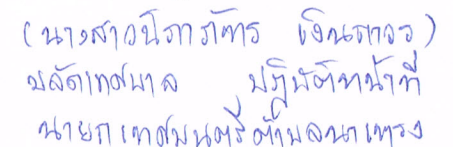 (นางสาวนิภาภัทร เงินถาวร)
ปลัดเทศบาล ปฏิบัติหน้าที่
นายกเทศมนตรีตำบลนาเหรง